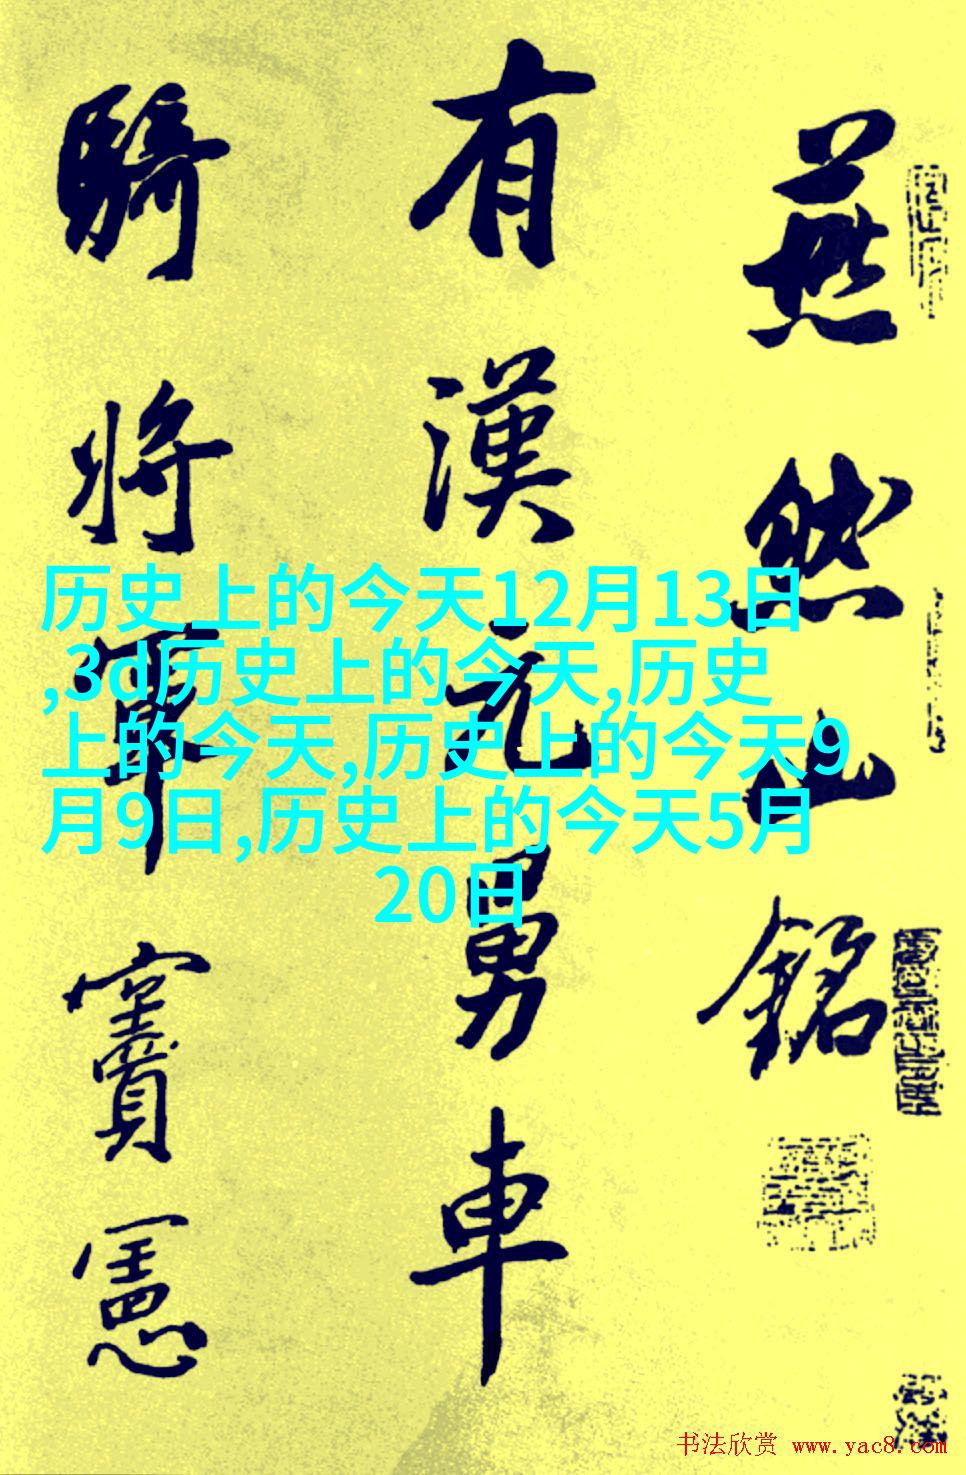 燕然山銘
有漢元舅車
騎將軍竇憲
历史上的今天12月13日
,3d历史上的今天,历史
上的今天,历史上的今天9
月9日,历史上的今天5月
20日
书法欣赏 www.yac8.com